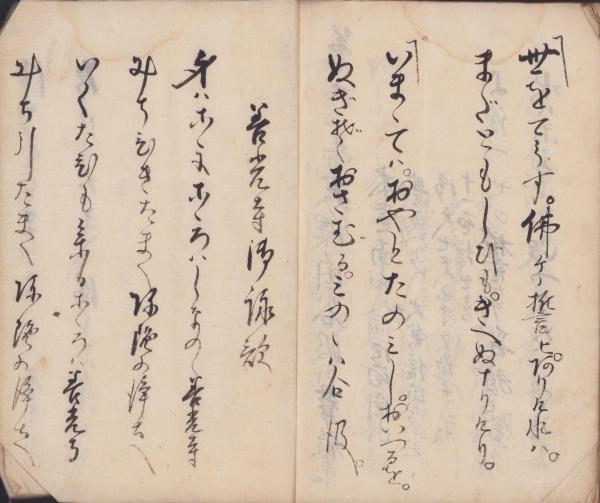 世をてらす。佛ケ誓と。ありけれハ。
まだともしびも。きへぬナリけり。
いまてハ。おやとたのミし。おいつるを。
ぬぎ おさむる。ミのゝ谷汲。
善光寺御詠歌
身ハこゝにこゝろハしなのゝ善光寺
みちびきたまへ 弥陀の浄土へ
いくたびも参るこゝろハ善光寺
みち引たまへ 弥陀の浄土へ